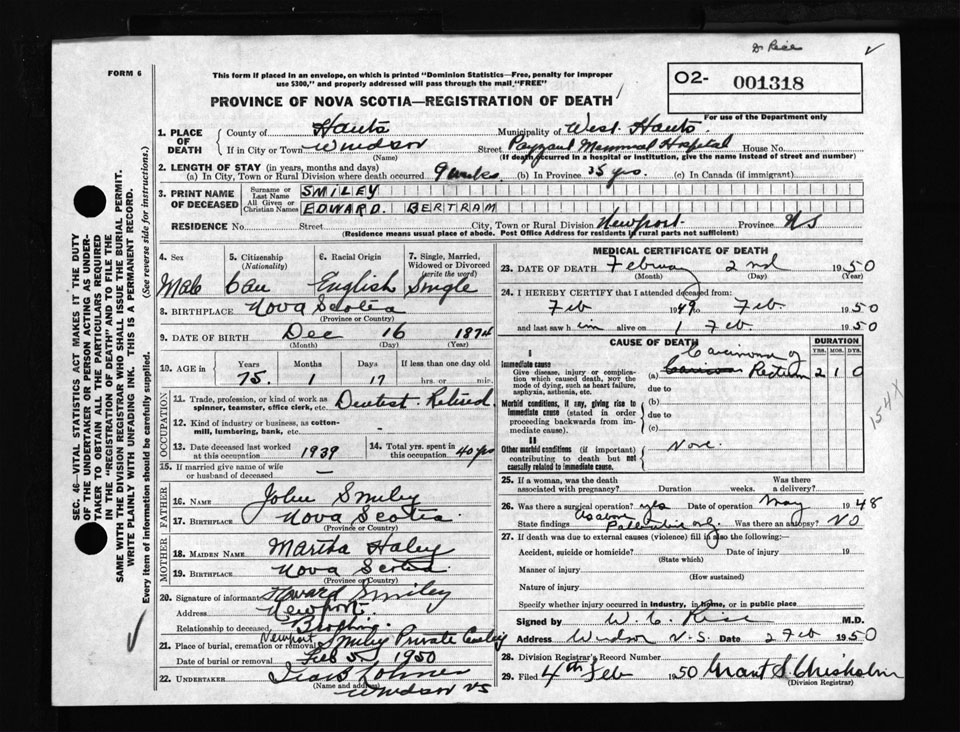 Dr Rice
FORM 6
This form if placed in an envelope, on which is printed "Dominion Statistics—Free, penalty for improper
use $300," and properly addressed will pass through the mail "FREE"
O2- 001318
For use of the Department only
PROVINCE OF NOVA SCOTIA—REGISTRATION OF DEATH
1. PLACE OF DEATH
County of Hants Municipality of West Hants.
If in City or Town Windsor Street Payzant Memorial Hospital House No.
(Name) (If death occurred in a hospital or institution, give the name instead of street and number)
2. LENGTH OF STAY (in years, months and days)
(a) In City, Town or Rural Division where death occurred 9 weeks (b) In Province 35 yrs. (c) In Canada (if immigrant)
3. PRINT NAME OF DECEASED
Surname or Last Name SMILEY
All Given or Christian Names EDWARD. BERTRAM
RESIDENCE No. Street City, Town or Rural Division Newport Province NS
(Residence means usual place of abode. Post Office Address for residents in rural parts not sufficient)
4. Sex Male
5. Citizenship (Nationality) Can
6. Racial Origin English
7. Single, Married, Widowed or Divorced (write the word) Single
8. BIRTHPLACE Nova Scotia
(Province or Country)
9. DATE OF BIRTH Dec 16 1874
(Month) (Day) (Year)
10. AGE in Years 75. Months 1 Days 17 If less than one day old
hrs. or min.
OCCUPATION
11. Trade, profession, or kind of work as
spinner, teamster, office clerk, etc. Dentist. Retired
12. Kind of industry or business, as cotton-
mill, lumbering, bank, etc. -
13. Date deceased last worked
at this occupation 1939
14. Total yrs. spent in
this occupation 40 yrs
15. If married give name of wife
or husband of deceased —
FATHER
16. NAME John Smiley
17. BIRTHPLACE Nova Scotia.
(Province or Country)
MOTHER
18. MAIDEN NAME Martha Haley
19. BIRTHPLACE Nova Scotia
(Province or Country)
20. Signature of informant Howard Smiley
Address Newport.
Relationship to deceased
21. Place of burial, cremation or removal Newport Smiley Private
Date of burial or removal Feb 5 1950
22. UNDERTAKER
(Name and address) Windsor NS
MEDICAL CERTIFICATE OF DEATH
23. DATE OF DEATH February 2nd 1950
(Month) (Day) (Year)
24. I HEREBY CERTIFY that I attended deceased from:
Feb 1949 to Feb. 1950
and last saw him alive on 1 Feb 1950
CAUSE OF DEATH
DURATION
YRS. MOS. DYS.
I
Immediate cause
Give disease, injury or complication
which caused death, NOT the
mode of dying, such as heart failure,
asphyxia, asthenia, etc.
Carcinoma of
(a) Rectum 2 1 0
due to
Morbid conditions, if any, giving rise to
immediate cause (stated in order
proceeding backwards from immediate
cause).
(b)
due to
(c)
154
II
Other morbid conditions (if important)
contributing to death but not
causally related to immediate cause.
None.
25. If a woman, was the death
associated with pregnancy? Duration weeks. Was there
a delivery?
26. Was there a surgical operation? yes Date of operation May 1948
State findings As above Palliative only. Was there an autopsy? NO
27. If death was due to external causes (violence) fill in also the following:—
Accident, suicide or homicide? Date of injury 19
(State which)
Manner of injury
(How sustained)
Nature of injury
Specify whether injury occurred in industry, in home, or in public place
Signed by W. C. Rice M.D.
Address Windsor N.S. Date 2 Feb 1950
28. Division Registrar's Record Number
29. Filed 4th Feb 1950 Grant S Chisholm
(Division Registrar)
SEC. 46—VITAL STATISTICS ACT MAKES IT THE DUTY
OF THE UNDERTAKER OR PERSON ACTING AS UNDER-
TAKER TO OBTAIN ALL THE PARTICULARS REQUIRED
IN THE "REGISTRATION OF DEATH" AND TO FILE THE
SAME WITH THE DIVISION REGISTRAR WHO SHALL ISSUE THE BURIAL PERMIT.
WRITE PLAINLY WITH UNFADING INK. THIS IS A PERMANENT RECORD.
Every item of information should be carefully supplied. (See reverse side for instructions.)